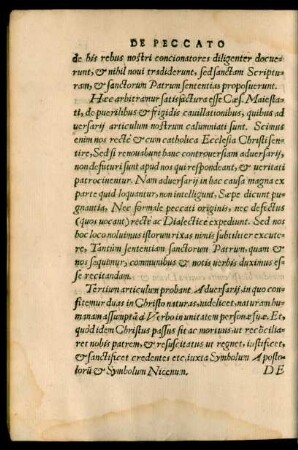 DE PECCATO
de his rebus nostri concionatores diligenter docue-
runt, & nihil noui tradiderunt, sed sanctam Scriptu-
ram, & sanctorum Patrum sententias proposuerunt.
Hæc arbitramur satisfactura esse Cæs. Maiesta-
ti, de puerilibus & frigidis cauillationibus, quibus ad
uersarij articulum nostrum calumniati sunt. Scimus
enim nos rectè & cum catholica Ecclesia Christi sente-
tire, Sed si renouabunt hanc controuersiam aduersarij,
non defuturi sunt apud nos qui respondeant, & veritati
patrocinentur. Nam aduersarij in hac causa magna ex
parte quid loquantur, non intelligunt, Sæpe dicunt pu-
gnantia, Nec formale peccati originis, nec defectus
(quos uocant) rectè ac Dialecticè expediunt. Sed nos
hoc loco noluimus istorum rixas nimis subtiliter excute-
re, Tantùm sententiam sanctorum Patrum, quam &
nos sequimur, communibus & notis verbis duximus es-
se recitandam.
Tertium articulum probant Aduersarij, in quo con-
fitemur duas in Christo naturas, uidelicet, naturam hu-
manam assumptã à Verbo in unitatem personæ suæ. Et,
quòd idem Christus passus sit ac mortuus ut recõcilia-
ret nobis patrem, & resuscitatus ut regnet, iustificet,
& sanctificet credentes etc. iuxta Symbolum Aposto-
lorũ & Symbolum Nicenum.
DE